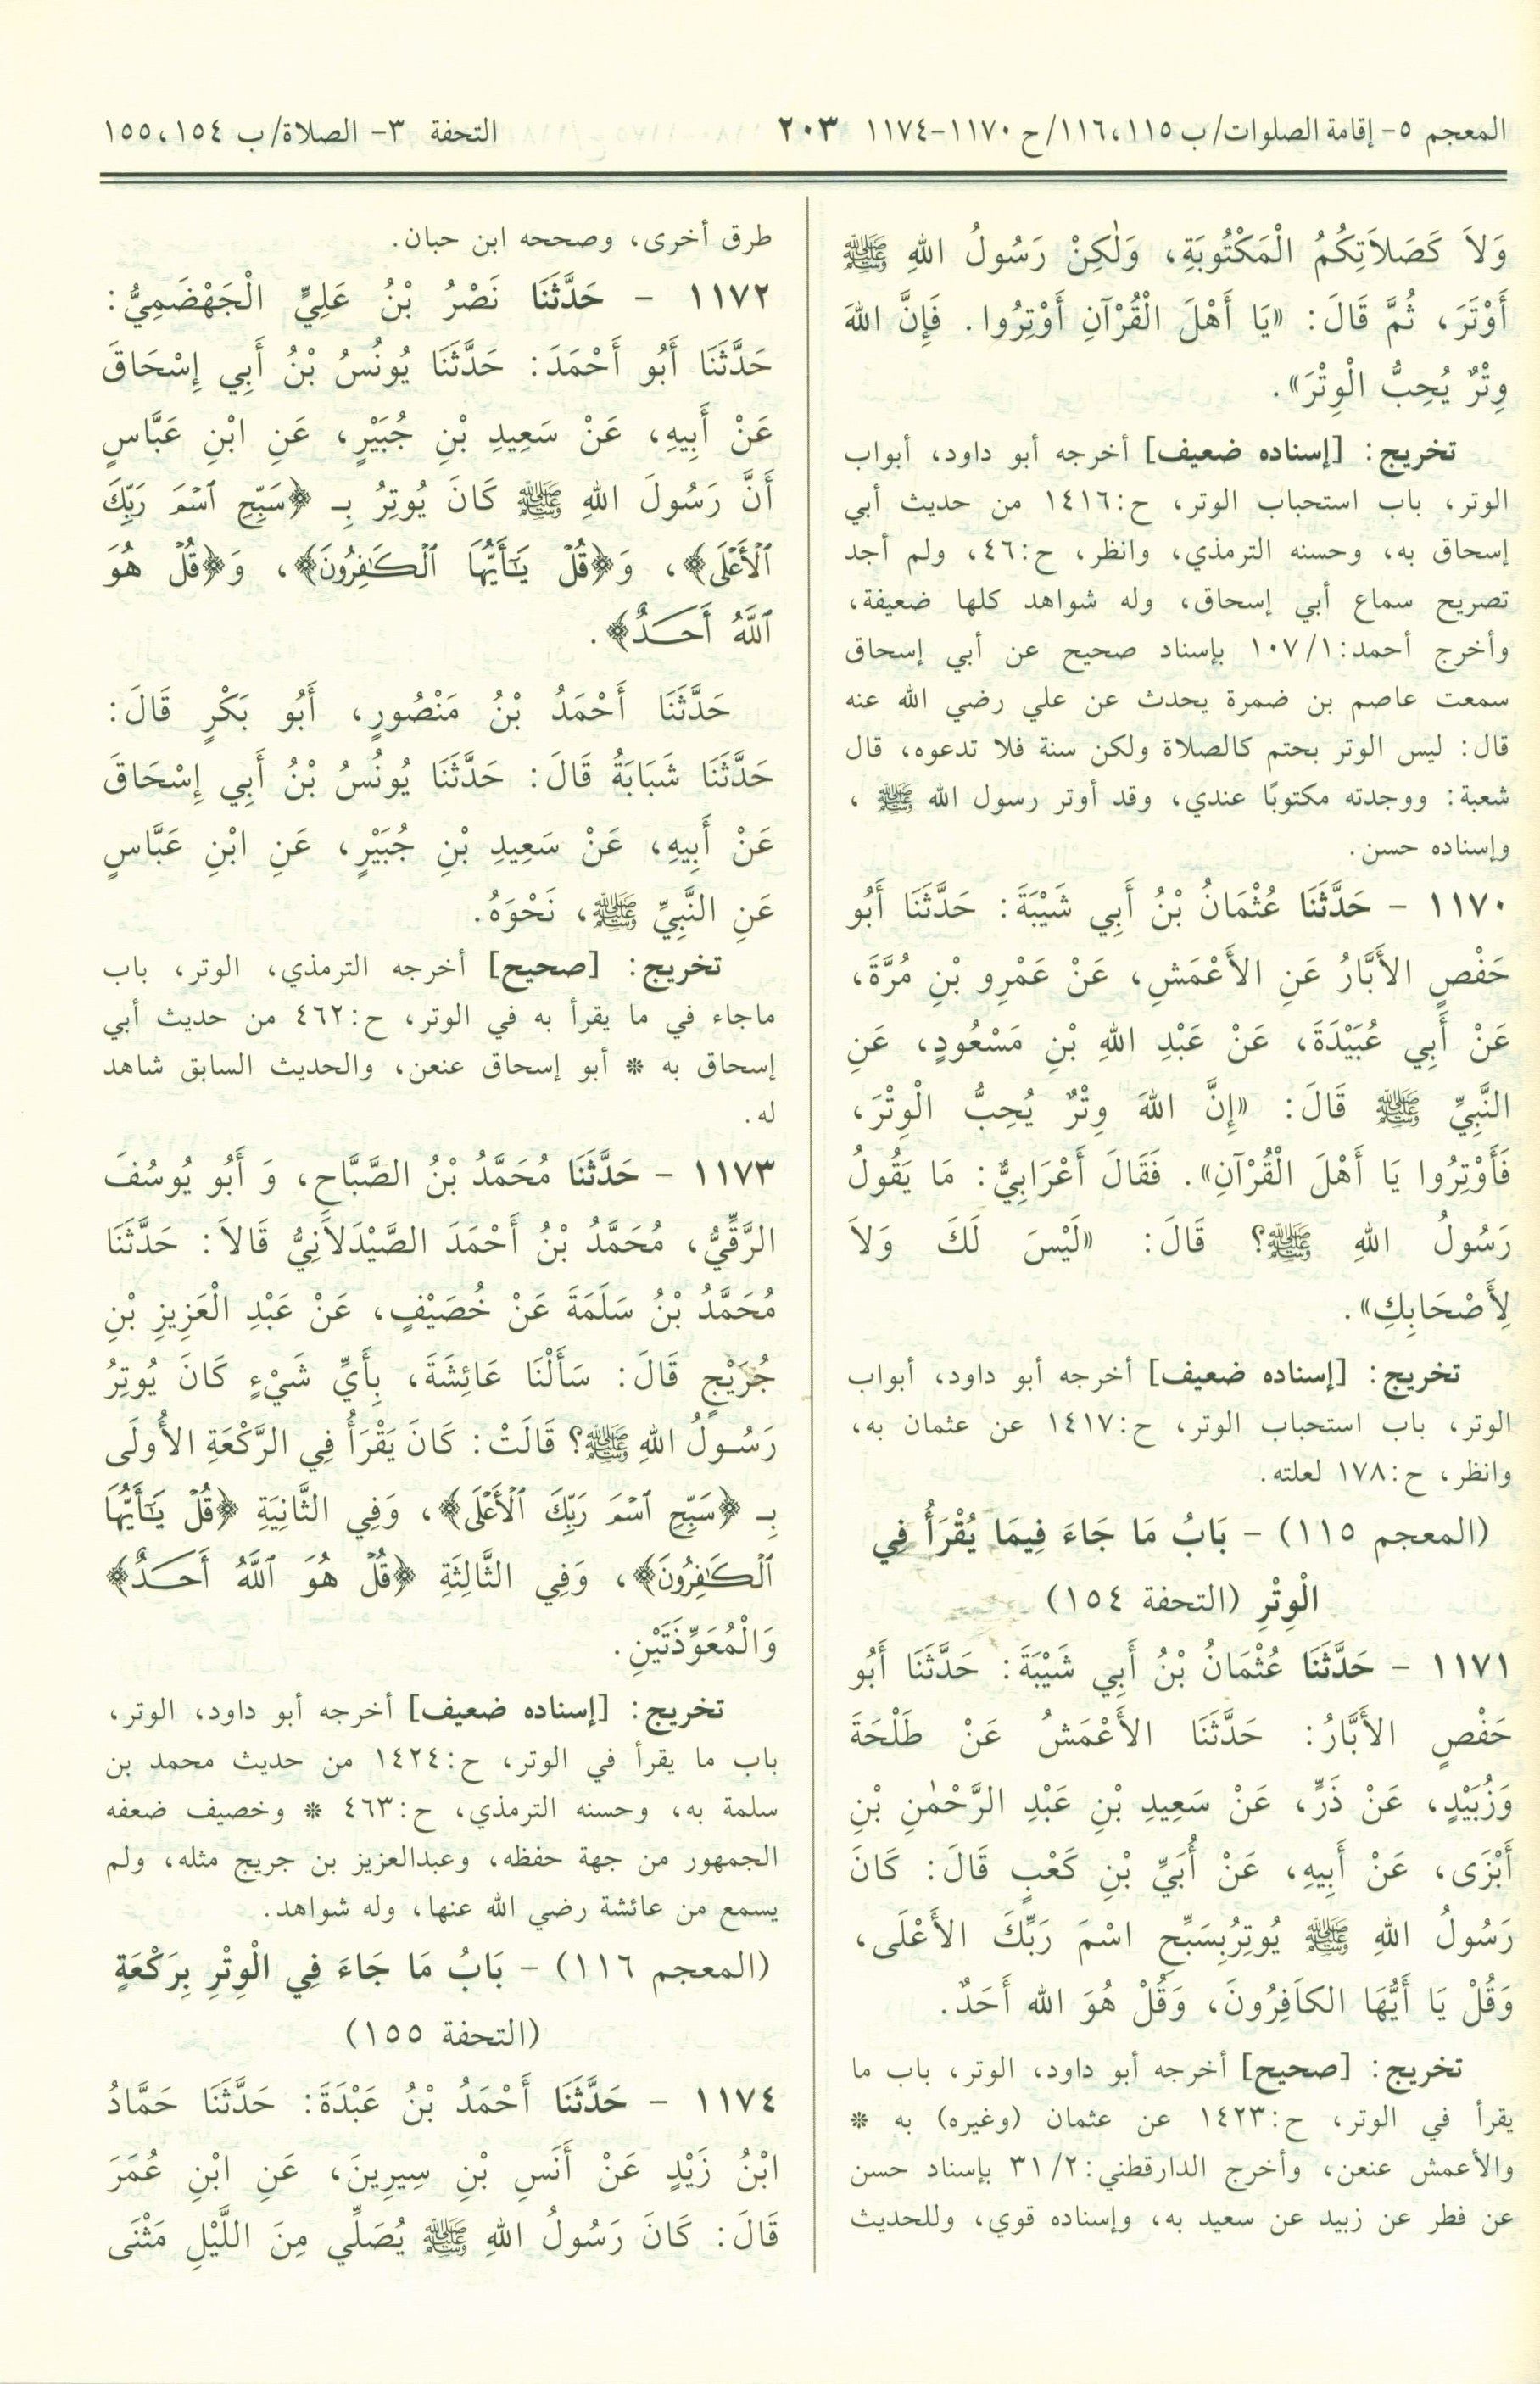 المعجم ٥- إقامة الصلوات/ ب ١١٥، ١١٦/ ح ١١٧٠-١١٧٤ ٢٠٣ التحفة ٣- الصلاة/ ب ١٥٤، ١٥٥
وَلاَ كَصَلاَتِكُمُ الْمَكْتُوبَةِ، وَلٰكِنْ رَسُولُ اللهِ ﷺ
أَوْتَرَ، ثُمَّ قَالَ: «يَا أَهْلَ الْقُرْآنِ أَوْتِرُوا. فَإِنَّ اللهَ
وِتْرٌ يُحِبُّ الْوِتْرَ».
تخريج: [إسناده ضعيف] أخرجه أبو داود، أبواب
الوتر، باب استحباب الوتر، ح:١٤١٦ من حديث أبي
إسحاق به، وحسنه الترمذي، وانظر، ح:٤٦، ولم أجد
تصريح سماع أبي إسحاق، وله شواهد كلها ضعيفة،
وأخرج أحمد:١/ ١٠٧ بإسناد صحيح عن أبي إسحاق
سمعت عاصم بن ضمرة يحدث عن علي رضي الله عنه
قال: ليس الوتر بحتم كالصلاة ولكن سنة فلا تدعوه، قال
شعبة: ووجدته مكتوبًا عندي، وقد أوتر رسول الله ﷺ ،
وإسناده حسن.
١١٧٠ - حَدَّثَنَا عُثْمَانُ بْنُ أَبِي شَيْبَةَ: حَدَّثَنَا أَبُو
حَفْصٍ الأَبَّارُ عَنِ الأَعْمَشِ، عَنْ عَمْرِو بْنِ مُرَّةَ،
عَنْ أَبِي عُبَيْدَةَ، عَنْ عَبْدِ اللهِ بْنِ مَسْعُودٍ، عَنِ
النَّبِيِّ ﷺ قَالَ: «إِنَّ اللهَ وِتْرٌ يُحِبُّ الْوِتْرَ،
فَأَوْتِرُوا يَا أَهْلَ الْقُرْآنِ». فَقَالَ أَعْرَابِيٌّ: مَا يَقُولُ
رَسُولُ اللهِ ﷺ؟ قَالَ: «لَيْسَ لَكَ وَلاَ
لِأَصْحَابِكِ».
تخريج: [إسناده ضعيف] أخرجه أبو داود، أبواب
الوتر، باب استحباب الوتر، ح:١٤١٧ عن عثمان به،
وانظر، ح:١٧٨ لعلته.
(المعجم ١١٥) - بَابُ مَا جَاءَ فِيمَا يُقْرَأُ فِي
الْوِتْرِ (التحفة ١٥٤)
١١٧١ - حَدَّثَنَا عُثْمَانُ بْنُ أَبِي شَيْبَةَ: حَدَّثَنَا أَبُو
حَفْصٍ الأَبَّارُ: حَدَّثَنَا الأَعْمَشُ عَنْ طَلْحَةَ
وَزُبَيْدٍ، عَنْ ذَرٍّ، عَنْ سَعِيدِ بْنِ عَبْدِ الرَّحْمٰنِ بْنِ
أَبْزَى، عَنْ أَبِيهِ، عَنْ أُبَيِّ بْنِ كَعْبٍ قَالَ: كَانَ
رَسُولُ اللهِ ﷺ يُوتِرُبِسَبِّحِ اسْمَ رَبِّكَ الأَعْلَى،
وَقُلْ يَا أَيُّهَا الكَافِرُونَ، وَقُلْ هُوَ الله أَحَدٌ.
تخريج: [صحيح] أخرجه أبو داود، الوتر، باب ما
يقرأ في الوتر، ح:١٤٢٣ عن عثمان (وغيره) به *
والأعمش عنعن، وأخرج الدارقطني:٢/ ٣١ بإسناد حسن
عن فطر عن زبيد عن سعيد به، وإسناده قوي، وللحديث
طرق أخرى، وصححه ابن حبان.
١١٧٢ - حَدَّثَنَا نَصْرُ بْنُ عَلِيٍّ الْجَهْضَمِيُّ:
حَدَّثَنَا أَبُو أَحْمَدَ: حَدَّثَنَا يُونُسُ بْنُ أَبِي إِسْحَاقَ
عَنْ أَبِيهِ، عَنْ سَعِيدِ بْنِ جُبَيْرٍ، عَنِ ابْنِ عَبَّاسٍ
أَنَّ رَسُولَ اللهِ ﷺ كَانَ يُوتِرُ بِـ ﴿سَبِّحِ ٱسْمَ رَبِّكَ
ٱلْأَعْلَى﴾، وَ﴿قُلْ يَـٰٓأَيُّهَا ٱلْكَـٰفِرُونَ﴾، وَ﴿قُلْ هُوَ
ٱللَّهُ أَحَدٌ﴾.
حَدَّثَنَا أَحْمَدُ بْنُ مَنْصُورٍ، أَبُو بَكْرٍ قَالَ:
حَدَّثَنَا شَبَابَةُ قَالَ: حَدَّثَنَا يُونُسُ بْنُ أَبِي إِسْحَاقَ
عَنْ أَبِيهِ، عَنْ سَعِيدِ بْنِ جُبَيْرٍ، عَنِ ابْنِ عَبَّاسٍ
عَنِ النَّبِيِّ ﷺ، نَحْوَهُ.
تخريج: [صحيح] أخرجه الترمذي، الوتر، باب
ماجاء في ما يقرأ به في الوتر، ح:٤٦٢ من حديث أبي
إسحاق به * أبو إسحاق عنعن، والحديث السابق شاهد
له.
١١٧٣ - حَدَّثَنَا مُحَمَّدُ بْنُ الصَّبَّاحِ، وَ أَبُو يُوسُفَ
الرَّقِّيُّ، مُحَمَّدُ بْنُ أَحْمَدَ الصَّيْدَلاَنِيُّ قَالاَ: حَدَّثَنَا
مُحَمَّدُ بْنُ سَلَمَةَ عَنْ خُصَيْفٍ، عَنْ عَبْدِ الْعَزِيزِ بْنِ
جُرَيْجٍ قَالَ: سَأَلْنَا عَائِشَةَ، بِأَيِّ شَيْءٍ كَانَ يُوتِرُ
رَسُولُ اللهِ ﷺ؟ قَالَتْ: كَانَ يَقْرَأُ فِي الرَّكْعَةِ الأُولَى
بِـ ﴿سَبِّحِ ٱسْمَ رَبِّكَ ٱلْأَعْلَى﴾، وَفِي الثَّانِيَةِ ﴿قُلْ يَـٰٓأَيُّهَا
ٱلْكَـٰفِرُونَ﴾، وَفِي الثَّالِثَةِ ﴿قُلْ هُوَ ٱللَّهُ أَحَدٌ﴾
وَالْمُعَوِّذَتَيْنِ.
تخريج: [إسناده ضعيف] أخرجه أبو داود، الوتر،
باب ما يقرأ في الوتر، ح:١٤٢٤ من حديث محمد بن
سلمة به، وحسنه الترمذي، ح:٤٦٣ * وخصيف ضعفه
الجمهور من جهة حفظه، وعبدالعزيز بن جريج مثله، ولم
يسمع من عائشة رضي الله عنها، وله شواهد.
(المعجم ١١٦) - بَابُ مَا جَاءَ فِي الْوِتْرِ بِرَكْعَةٍ
(التحفة ١٥٥)
١١٧٤ - حَدَّثَنَا أَحْمَدُ بْنُ عَبْدَةَ: حَدَّثَنَا حَمَّادُ
ابْنُ زَيْدٍ عَنْ أَنَسِ بْنِ سِيرِينَ، عَنِ ابْنِ عُمَرَ
قَالَ: كَانَ رَسُولُ اللهِ ﷺ يُصَلِّي مِنَ اللَّيْلِ مَثْنَى